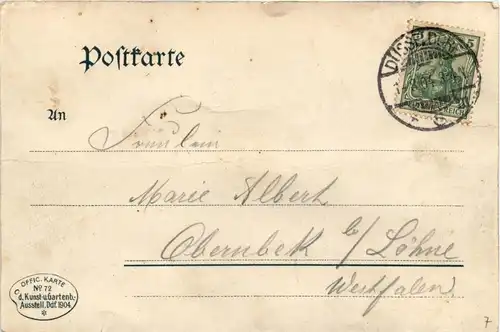 Postkarte
5
DÜSSELDORF
REICH
An
Fräulein
Marie Albert
Obernbek b/ Löhne
Westfalen
OFFIC. KARTE
No. 72
d. Kunst-u.Gartenb.-
Ausstell. Ddf. 1904
7